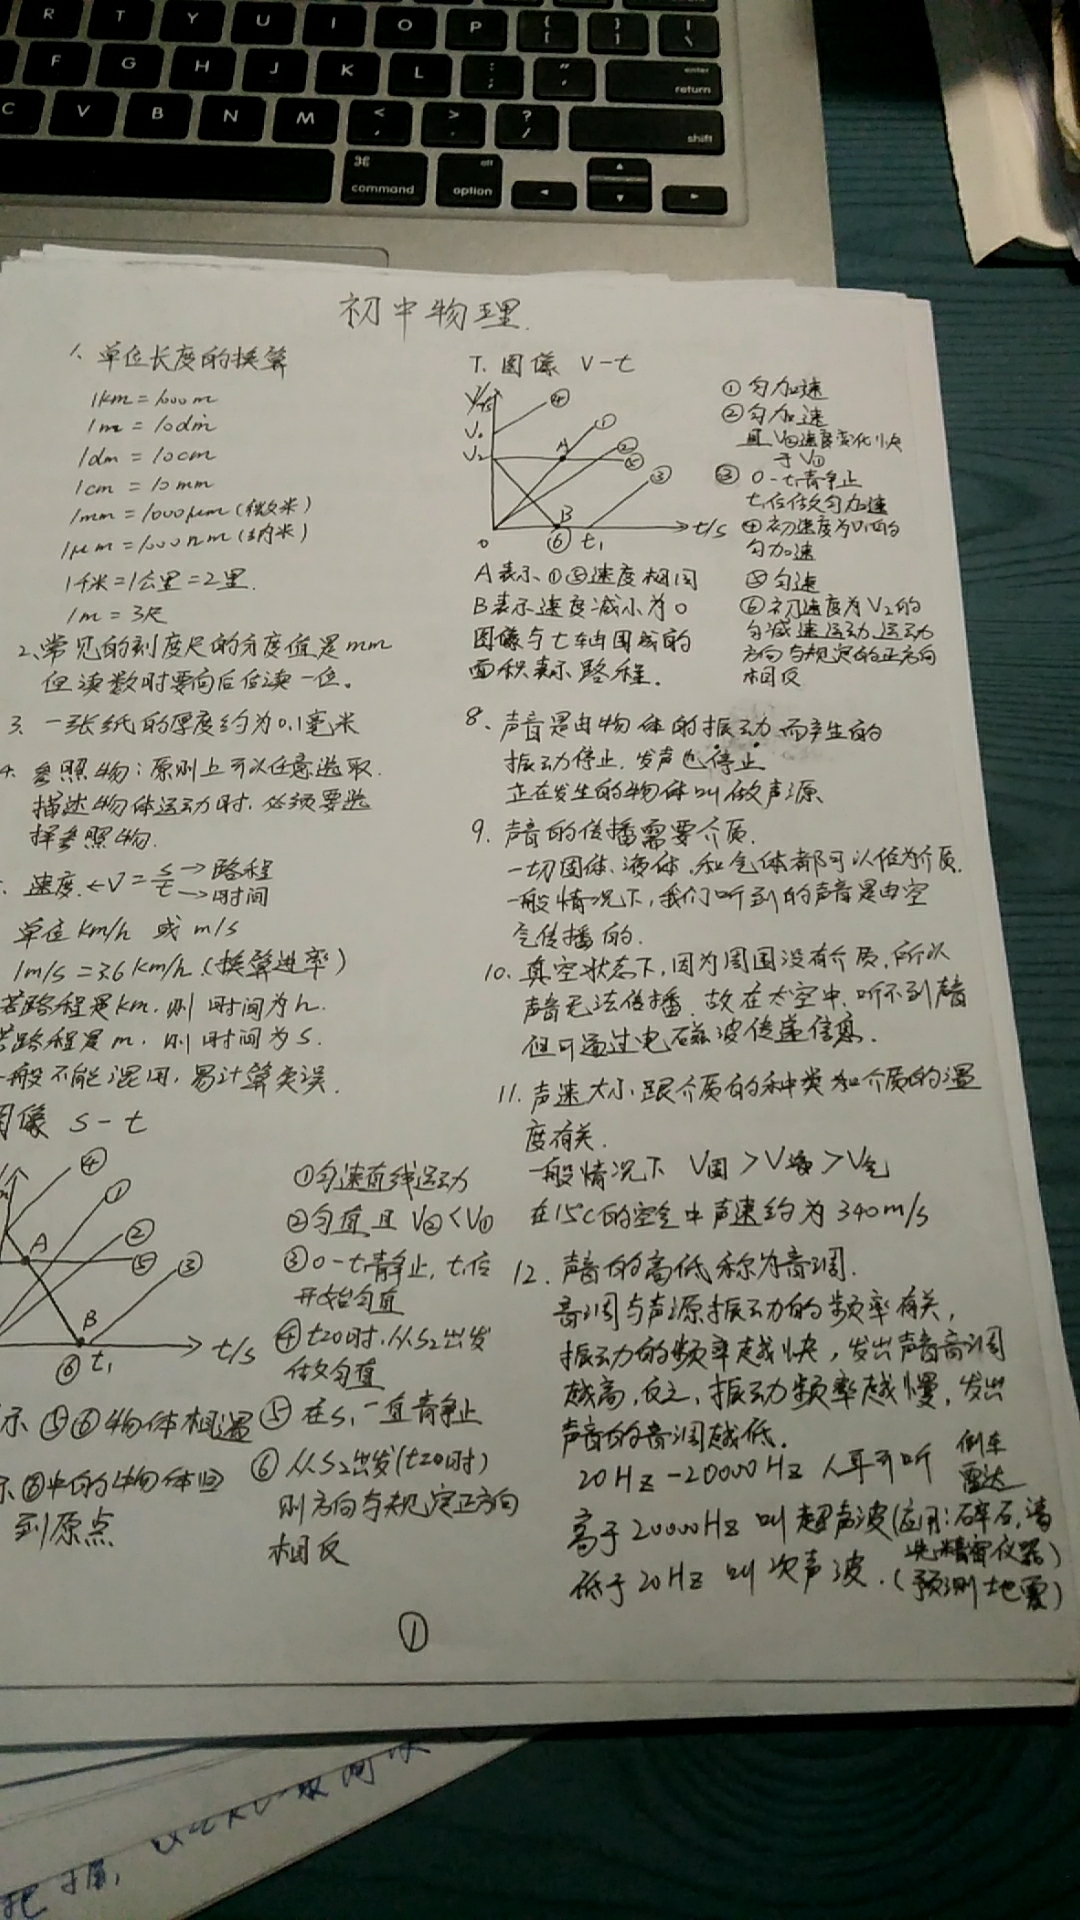 R T Y U I O P { [ } ] | \
F G H J K L : ; " ' enter return
C V B N M < , > . ? / shift
⌘ command alt option
初中物理.
1、单位长度的换算
1km=1000m
1m=10dm
1dm=10cm
1cm=10mm
1mm=1000μm(微米)
1μm=1000nm(纳米)
1千米=1公里=2里.
1m=3尺
2、常见的刻度尺的分度值是mm
但读数时要向后估读一位。
3、一张纸的厚度约为0.1毫米
4、参照物:原则上可以任意选取.
描述物体运动时.必须要选
择参照物.
速度.←V=s/t →路程
→时间
单位 km/h 或 m/s
1m/s=3.6km/h.(换算进率)
若路程是km.则时间为h.
若路程是m.则时间为s.
一般不能混用,易计算失误.
图像 s-t
④
①
A
②
⑤
③
B
t/s
⑥ t₁
①匀速直线运动
②匀直且V②<V①
③0-t₁静止,t₁后
开始匀直
④t=0时.从S₂出发
做匀直
⑤在S₁一直静止
⑥从S₂出发(t=0时)
则方向与规定正方向
相反
示⑤⑥物体相遇
示⑥中的物体回
到原点
7.图像 V-t
V/m/s
④
①
V₀
②
V₂
A
⑤
③
B
t/s
0
⑥ t₁
①匀加速
②匀加速
且V②速度变化慢
于V①
③0-t₁静止
t₁后做匀加速
④初速度为V₀的
匀加速
⑤匀速
⑥初速度为V₂的
匀减速运动.运动
方向与规定的正方向
相反
A表示①⑤速度相同
B表示速度减小为0
图像与t轴围成的
面积表示路程.
8、声音是由物体的振动而产生的
振动停止.发声也停止
正在发生的物体叫做声源
9.声音的传播需要介质.
一切固体、液体、和气体都可以作为介质.
一般情况下,我们听到的声音是由空
气传播的.
10、真空状态下,因为周围没有介质,所以
声音无法传播.故在太空中.听不到声音
但可通过电磁波传递信息.
11.声速大小跟介质的种类和介质的温
度有关.
一般情况下 V固>V液>V气
在15℃的空气中声速约为340m/s
12.声音的高低称为音调.
音调与声源振动的频率有关,
振动的频率越快,发出声音音调
越高,反之,振动频率越慢,发出
声音的音调越低.
20Hz-20000Hz 人耳可听
倒车
雷达
高于20000Hz 叫超声波(应用:碎石,清
洗精密仪器)
低于20Hz 叫次声波.(预测地震)
①